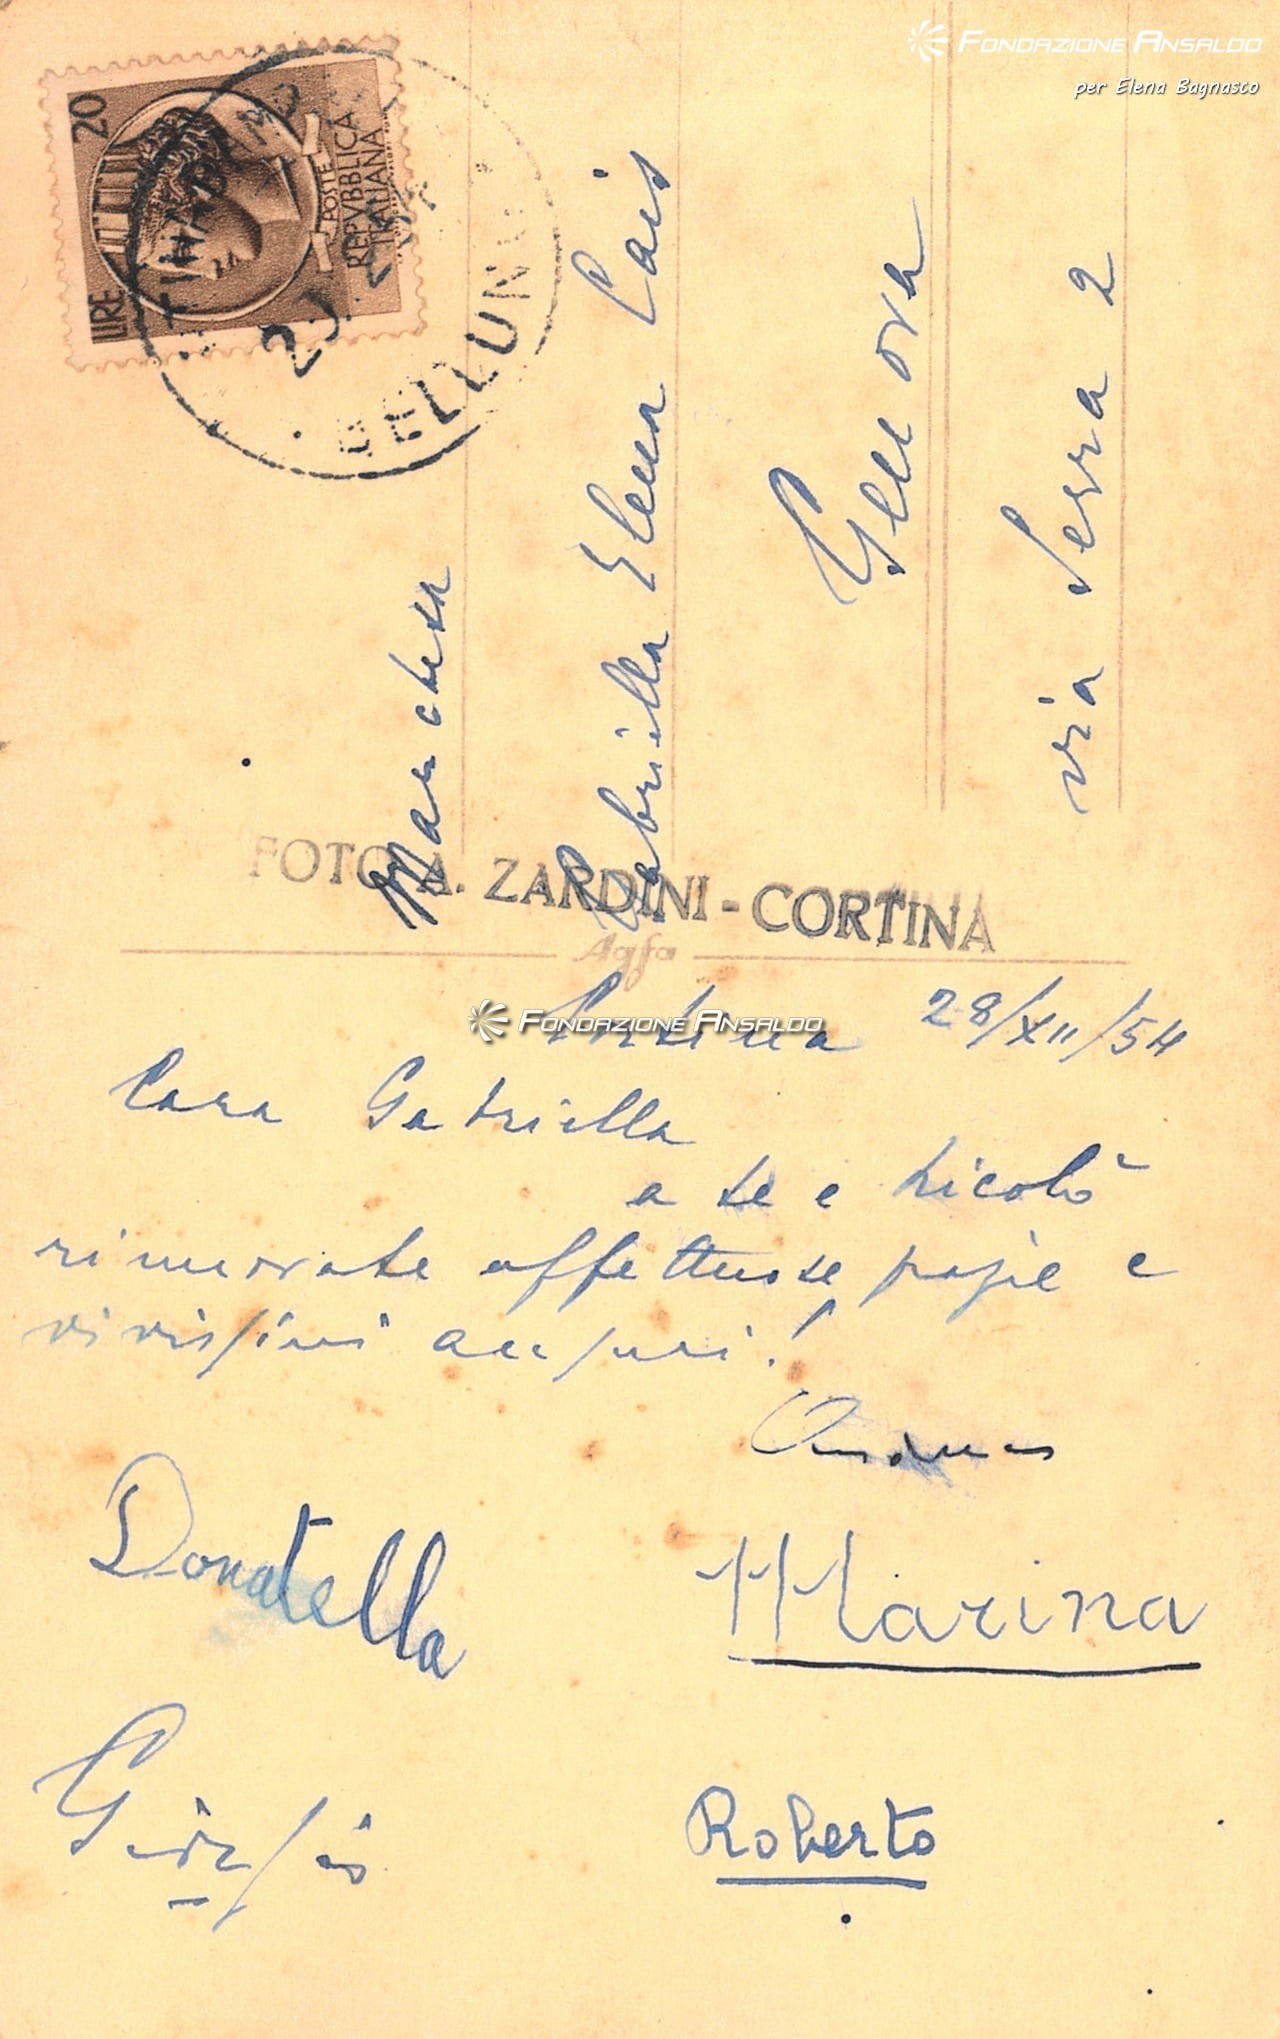 FONDAZIONE ANSALDO
per Elena Bagnasco
LIRE 20
POSTE
REPVBBLICA
ITALIANA
BELLUN
Marchesa
Gabriella Elena Cais
Genova
via Serra 2
FOTO A. ZARDINI - CORTINA
Agfa
FONDAZIONE ANSALDO
Cortina 28/XII/54
Cara Gabriella
a te e Nicolò
rinnovate affettuose grazie e
vivissimi auguri!
Donatella
Marina
Giorgio
Roberto